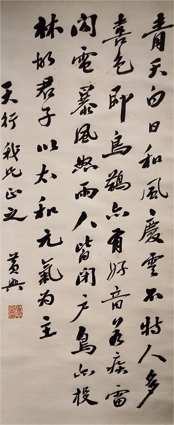 青天白日和風慶雲不特人多
喜色即鳥鵲亦有好音若疾雷
閃電暴風怒雨人皆閉户鳥亦投
林故君子以太和元氣為主
天行我兄正之
黄興